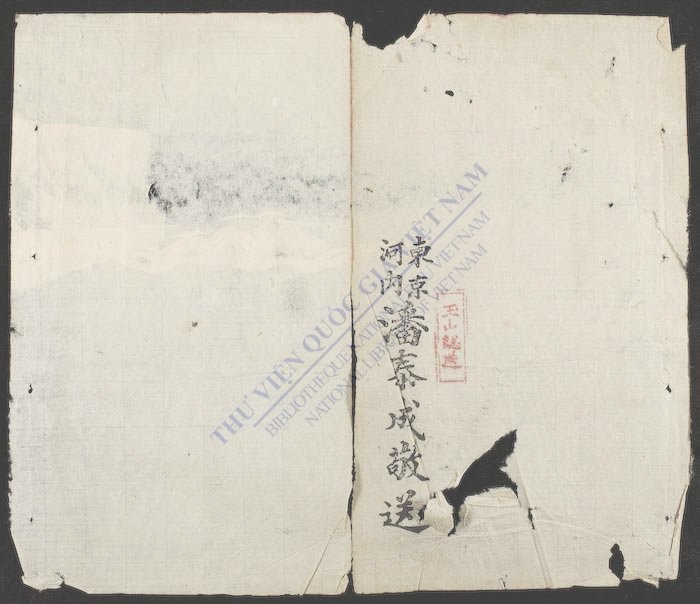 玉山
東京
河内
潘泰成敬送
THƯ VIỆN QUỐC GIA VIỆT NAM
BIBLIOTHÈQUE NATIONALE DU VIETNAM
NATIONAL LIBRARY OF VIETNAM